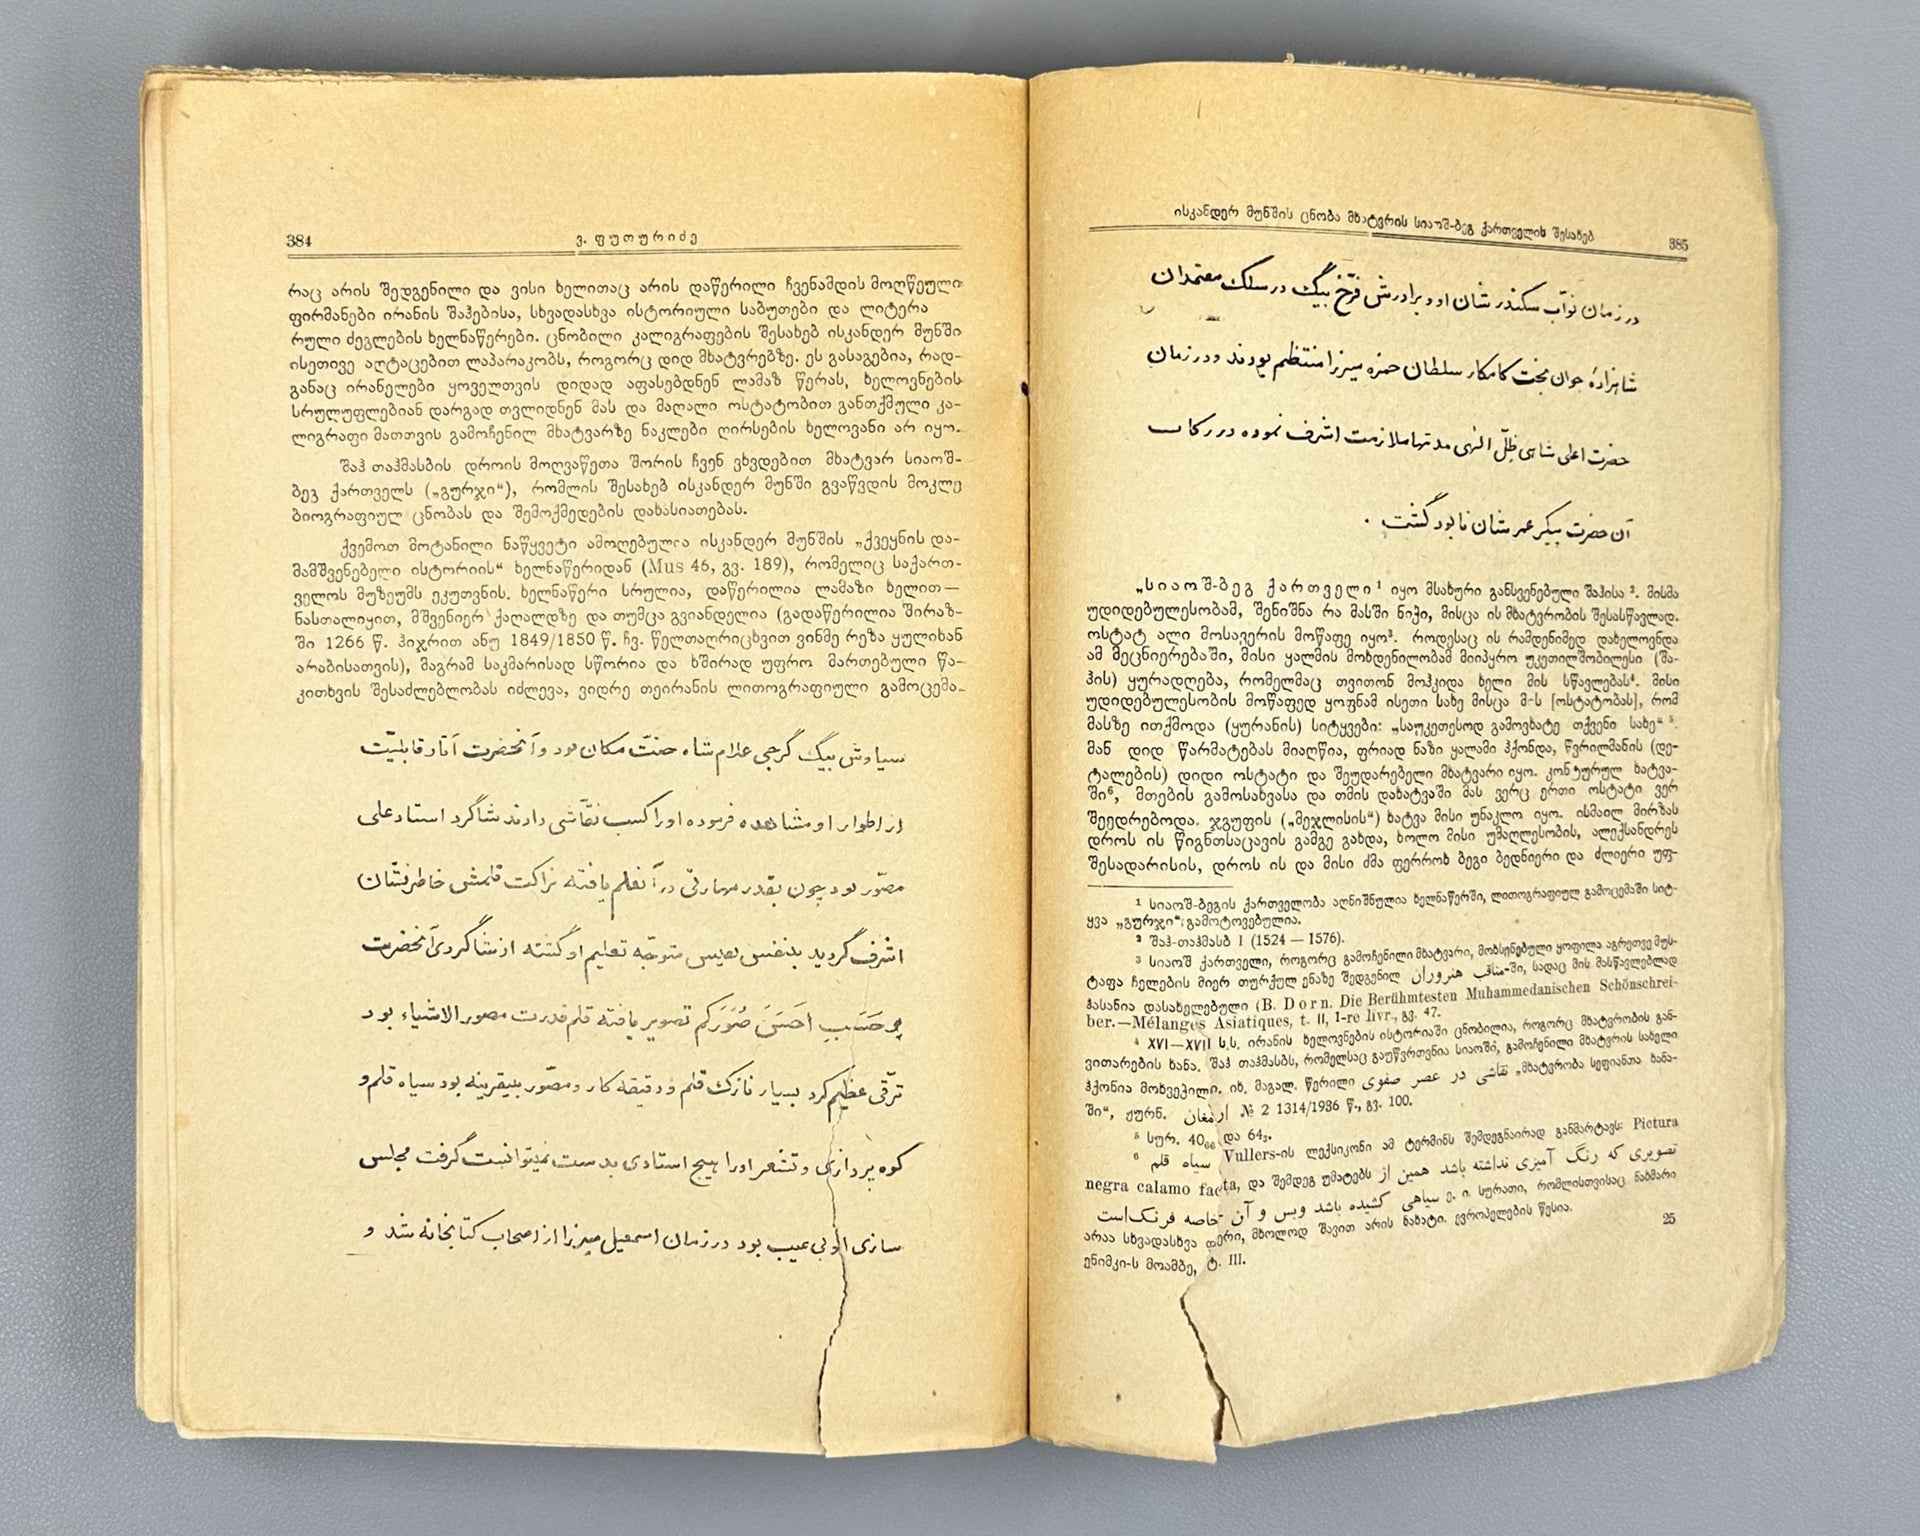 384
ვ. ფუთურიძე
რაც არის შედგენილი და ვისი ხელითაც არის დაწერილი ჩვენამდის მოღწეული
ფირმანები ირანის შაჰებისა, სხვადასხვა ისტორიული საბუთები და ლიტერა
რული ძეგლების ხელნაწერები. ცნობილი კალიგრაფების შესახებ ისკანდერ მუნში
ისეთივე აღტაცებით ლაპარაკობს, როგორც დიდ მხატვრებზე. ეს გასაგებია, რად-
განაც ირანელები ყოველთვის დიდად აფასებდნენ ლამაზ წერას, ხელოვნების
სრულუფლებიან დარგად თვლიდნენ მას და მაღალი ოსტატობით განთქმული კა-
ლიგრაფი მათთვის გამოჩენილ მხატვარზე ნაკლები ღირსების ხელოვანი არ იყო.
შაჰ თაჰმასბის დროის მოღვაწეთა შორის ჩვენ ვხვდებით მხატვარ სიაოშ-
ბეგ ქართველს („გურჯი“), რომლის შესახებ ისკანდერ მუნში გვაწვდის მოკლე
ბიოგრაფიულ ცნობას და შემოქმედების დახასიათებას.
ქვემოთ მოტანილი ნაწყვეტი ამოღებულია ისკანდერ მუნშის „ქვეყნის და-
მამშვენებელი ისტორიის“ ხელნაწერიდან (Mus 46, გვ. 189), რომელიც საქართ-
ველოს მუზეუმს ეკუთვნის. ხელნაწერი სრულია, დაწერილია ლამაზი ხელით—
ნასთალიყით, მშვენიერ ქაღალდზე და თუმცა გვიანდელია (გადაწერილია შირაზ-
ში 1266 წ. ჰიჯრით ანუ 1849/1850 წ. ჩვ. წელთაღრიცხვით ვინმე რეზა ყულიხან
არაბისათვის), მაგრამ საკმარისად სწორია და ხშირად უფრო მართებული წა-
კითხვის შესაძლებლობას იძლევა, ვიდრე თეირანის ლითოგრაფიული გამოცემა.
سیاوش بیگ گرجی غلام شاه جنّت مکان بود و آنحضرت آثار قابلیّت
از اطوار او مشاهده فرموده او را کسب نقّاشی دارند شاگرد استاد علی
مصّور بود چون بقدر مهارتی در آنعلم یافته نزاکت قلمش خاطرنشان
اشرف گردید بنفس نفیس متوجّه تعلیم او گشته از شاگردی آنحضرت
بر حَسَبِ اَحسَنَ صُوَرَکم تصویر یافته قلم قدرت مصور الاشیاء بود
ترقّی عظیم کرد بسیار نازک قلم و دقیقه کار و مصّور بیقرینه بود سیاه قلم و
کوه پردازی و تشعر او را هیچ استادی بدست نمیتوانست گرفت مجلس
سازی او بی عیب بود در زمان اسمعیل میرزا از اصحاب کتابخانه شد و
ისკანდერ მუნშის ცნობა მხატვრის სიაოშ-ბეგ ქართველის შესახებ
385
در زمان نوّاب سکندر شان او و برادرش فرّخ بیگ در سلک معتمدان
شاهزادهٔ جوان بخت کامکار سلطان حمزه میرزا منتظم بودند و در زمان
حضرت اعلی شاهی ظلّ الهی مدتها ملازمت اشرف نموده در رکاب
آن حضرت پیکر عمرشان نابود گشت .
„სიაოშ-ბეგ ქართველი¹ იყო მსახური განსვენებული შაჰისა². მისმა
უდიდებულესობამ, შენიშნა რა მასში ნიჭი, მისცა ის მხატვრობის შესასწავლად.
ოსტატ ალი მოსავერის მოწაფე იყო³. როდესაც ის რამდენიმედ დახელოვნდა
ამ მეცნიერებაში, მისი ყალმის მოხდენილობამ მიიპყრო უკეთილშობილესი (შა-
ჰის) ყურადღება, რომელმაც თვითონ მოჰკიდა ხელი მის სწავლებას⁴. მისი
უდიდებულესობის მოწაფედ ყოფნამ ისეთი სახე მისცა მ-ს [ოსტატობას], რომ
მასზე ითქმოდა (ყურანის) სიტყვები: „საუკეთესოდ გამოვხატე თქვენი სახე“ ⁵.
მან დიდ წარმატებას მიაღწია, ფრიად ნაზი ყალამი ჰქონდა, წვრილმანის (დე-
ტალების) დიდი ოსტატი და შეუდარებელი მხატვარი იყო. კონტურულ ხატვა-
ში⁶, მთების გამოსახვასა და თმის დახატვაში მას ვერც ერთი ოსტატი ვერ
შეედრებოდა. ჯგუფის („მეჯლისის“) ხატვა მისი უნაკლო იყო. ისმაილ მირზას
დროს ის წიგნთსაცავის გამგე გახდა, ხოლო მისი უმაღლესობის, ალექსანდრეს
შესადარისის, დროს ის და მისი ძმა ფერროხ ბეგი ბედნიერი და ძლიერი უფ-
¹ სიაოშ-ბეგის ქართველობა აღნიშნულია ხელნაწერში, ლითოგრაფიულ გამოცემაში სიტ-
ყვა „გურჯი“ გამოტოვებულია.
² შაჰ-თაჰმასბ I (1524 — 1576).
³ სიაოშ ქართველი, როგორც გამოჩენილი მხატვარი, მოხსენებული ყოფილა აგრეთვე მუს-
ტაფა ჩელების მიერ თურქულ ენაზე შედგენილ مناقب هنروران-ში, სადაც მის მასწავლებლად
ჰასანია დასახელებული (B. Dorn. Die Berühmtesten Muhammedanischen Schönschrei-
ber.—Mélanges Asiatiques, t. II, 1-re livr., გვ. 47.
⁴ XVI—XVII ს.ს. ირანის ხელოვნების ისტორიაში ცნობილია, როგორც მხატვრობის გან-
ვითარების ხანა. შაჰ თაჰმასბს, რომელსაც გაუწვრთვნია სიაოში, გამოჩენილი მხატვრის სახელი
ჰქონია მოხვეჭილი. იხ. მაგალ. წერილი نقاشی در عصر صفوی „მხატვრობა სეფიანთა ხანა-
ში“, ჟურნ. ارمغان № 2 1314/1936 წ., გვ. 100.
⁵ სურ. 40₆₆ და 64₃.
⁶ سیاه قلم Vullers-ის ლექსიკონი ამ ტერმინს შემდეგნაირად განმარტავს: Pictura
negra calamo facta, და შემდეგ უმატებს تصویری که رنگ آمیزی نداشته باشد همین از
سیاهی کشیده باشد وبس و آن خاصه فرنک است ე. ი. სურათი, რომლისთვისაც ნახმარი
არაა სხვადასხვა ფერი, მხოლოდ შავით არის ნახატი. ევროპელების წესია.
ენიმკი-ს მოამბე, ტ. III.
25